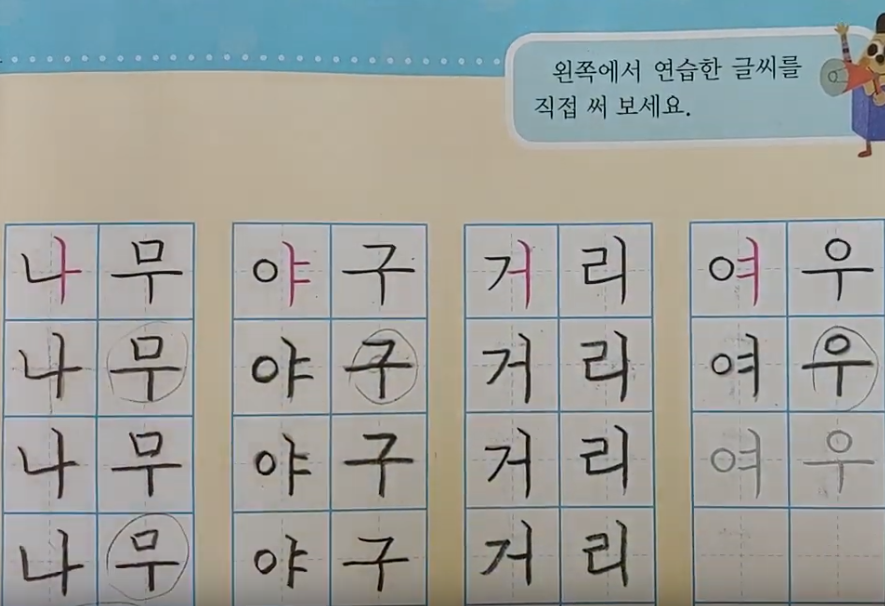 왼쪽에서 연습한 글씨를
직접 써 보세요.
나무 야구 거리 여우
나무 야구 거리 여우
나무 야구 거리 여우
나무 야구 거리